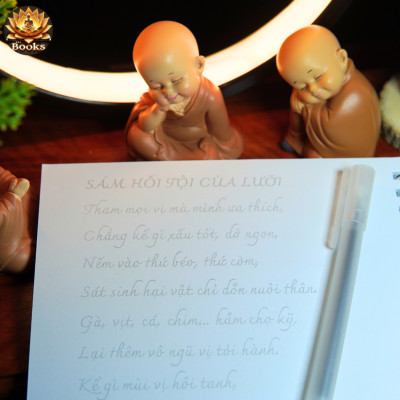 Books
SÁM HỐI TỘI CỦA LƯỠI
Tham mọi vị mà mình ưa thích,
Chẳng kể gì xấu tốt, dở ngon,
Nếm vào thứ béo, thứ còm,
Sát sinh hại vật chỉ dồn nuôi thân.
Gà, vịt, cá, chim... hầm cho kỹ,
Lại thêm vô ngũ vị tỏi hành.
Kể gì mùi vị hôi tanh,